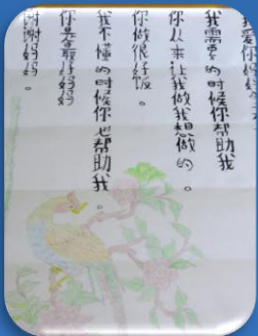 我爱你妈妈
我需要的时候你帮助我
你从来让我做我想做的。
你做很好饭。
我不懂的时候你也帮助我。
你是最好妈妈
谢谢妈妈。